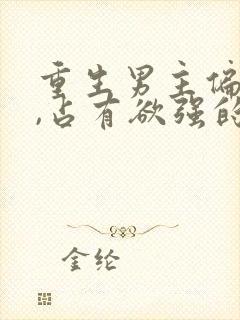 重生男主偏
,占有欲强的
金纶